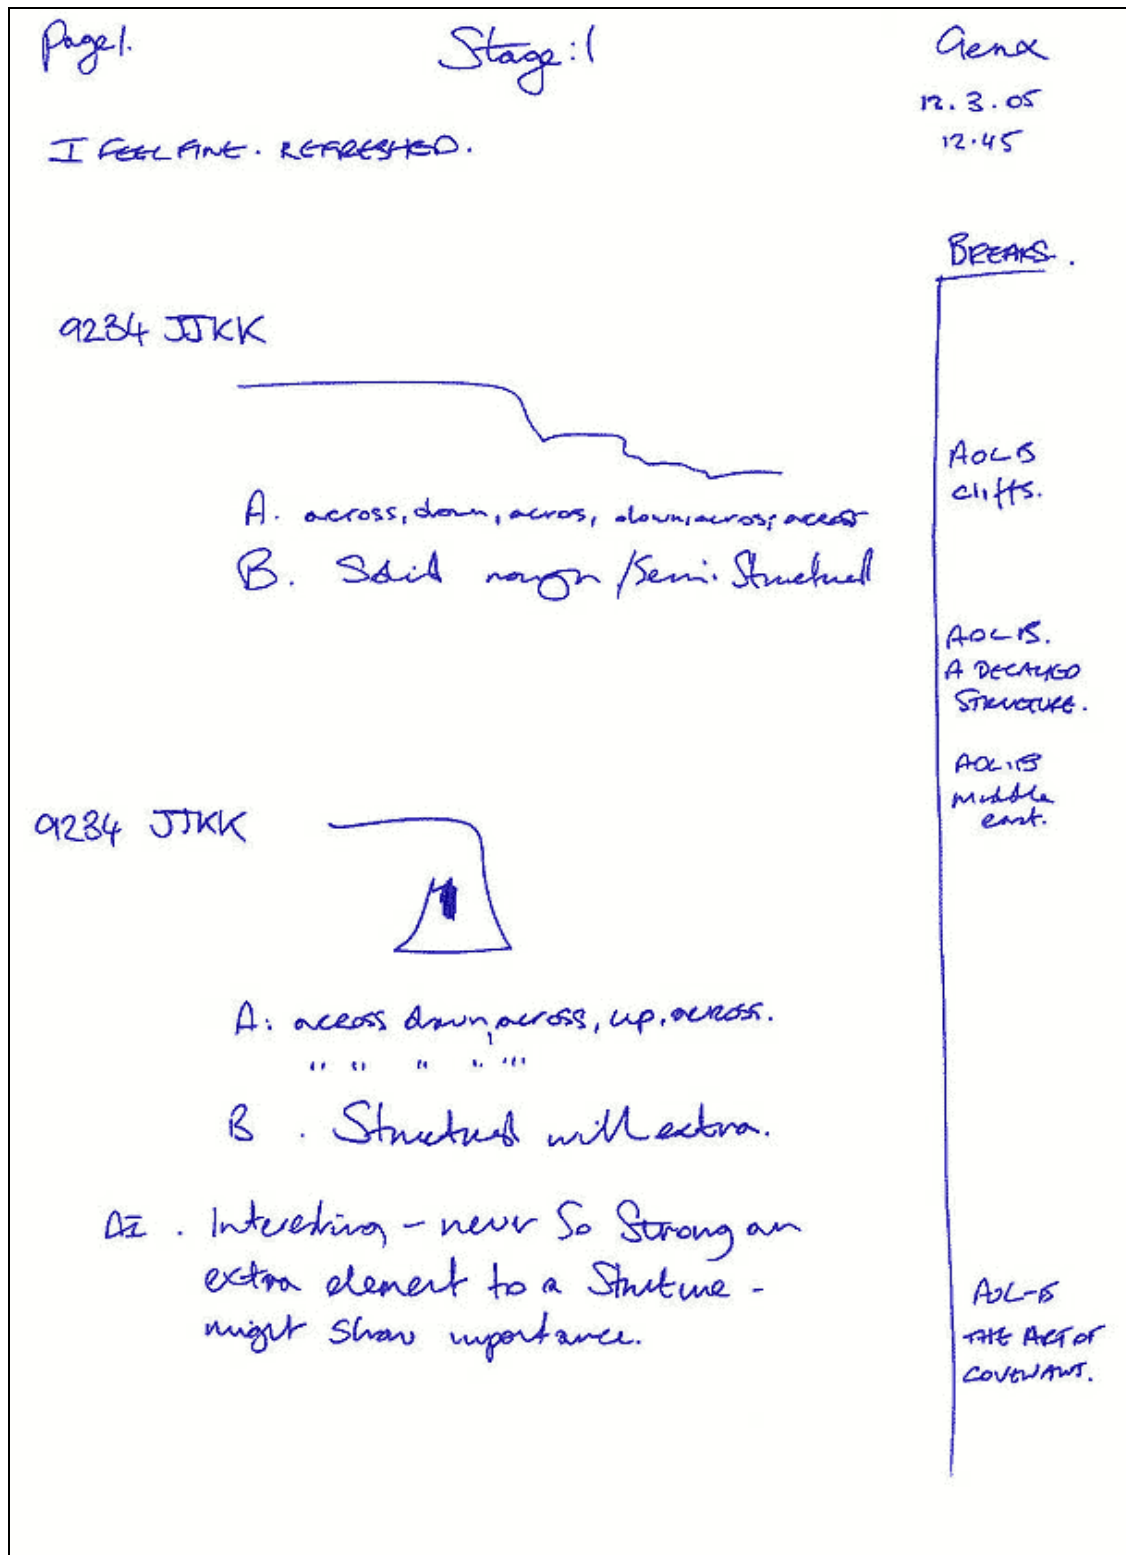 Page 1.
Stage: 1
Genα
12.3.05
12.45
I FEEL FINE. REFRESHED.
BREAKS.
9234 JJKK
AOLB
cliffs.
A. across, down, across, down, across, across
B. Solid rough /Semi. Structured
AOLB.
A DECAYED
STRUCTURE.
AOL:B
middle
east.
9234 JJKK
A: across down, across, up, across.
" " " " "
B . Structured will extra.
AI . Interesting - never So Strong an
extra element to a Structure -
might show importance.
AOL-B
THE ARC OF
COVENANT.